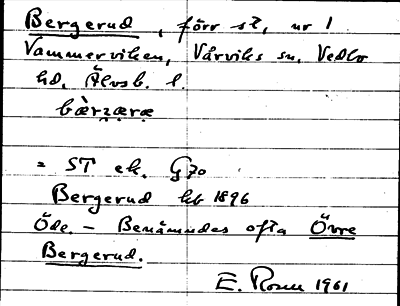 Bergerud, förr st, nr 1
Vammerviken, Vårviks sn, Vedbo
hd, Älvsb. l.
bæ̀rz̤æ̤ræ̤
= ST ek. G70
Bergerud hb 1896
Öde. – Benämndes ofta Övre
Bergerud.
E. Rosen 1961